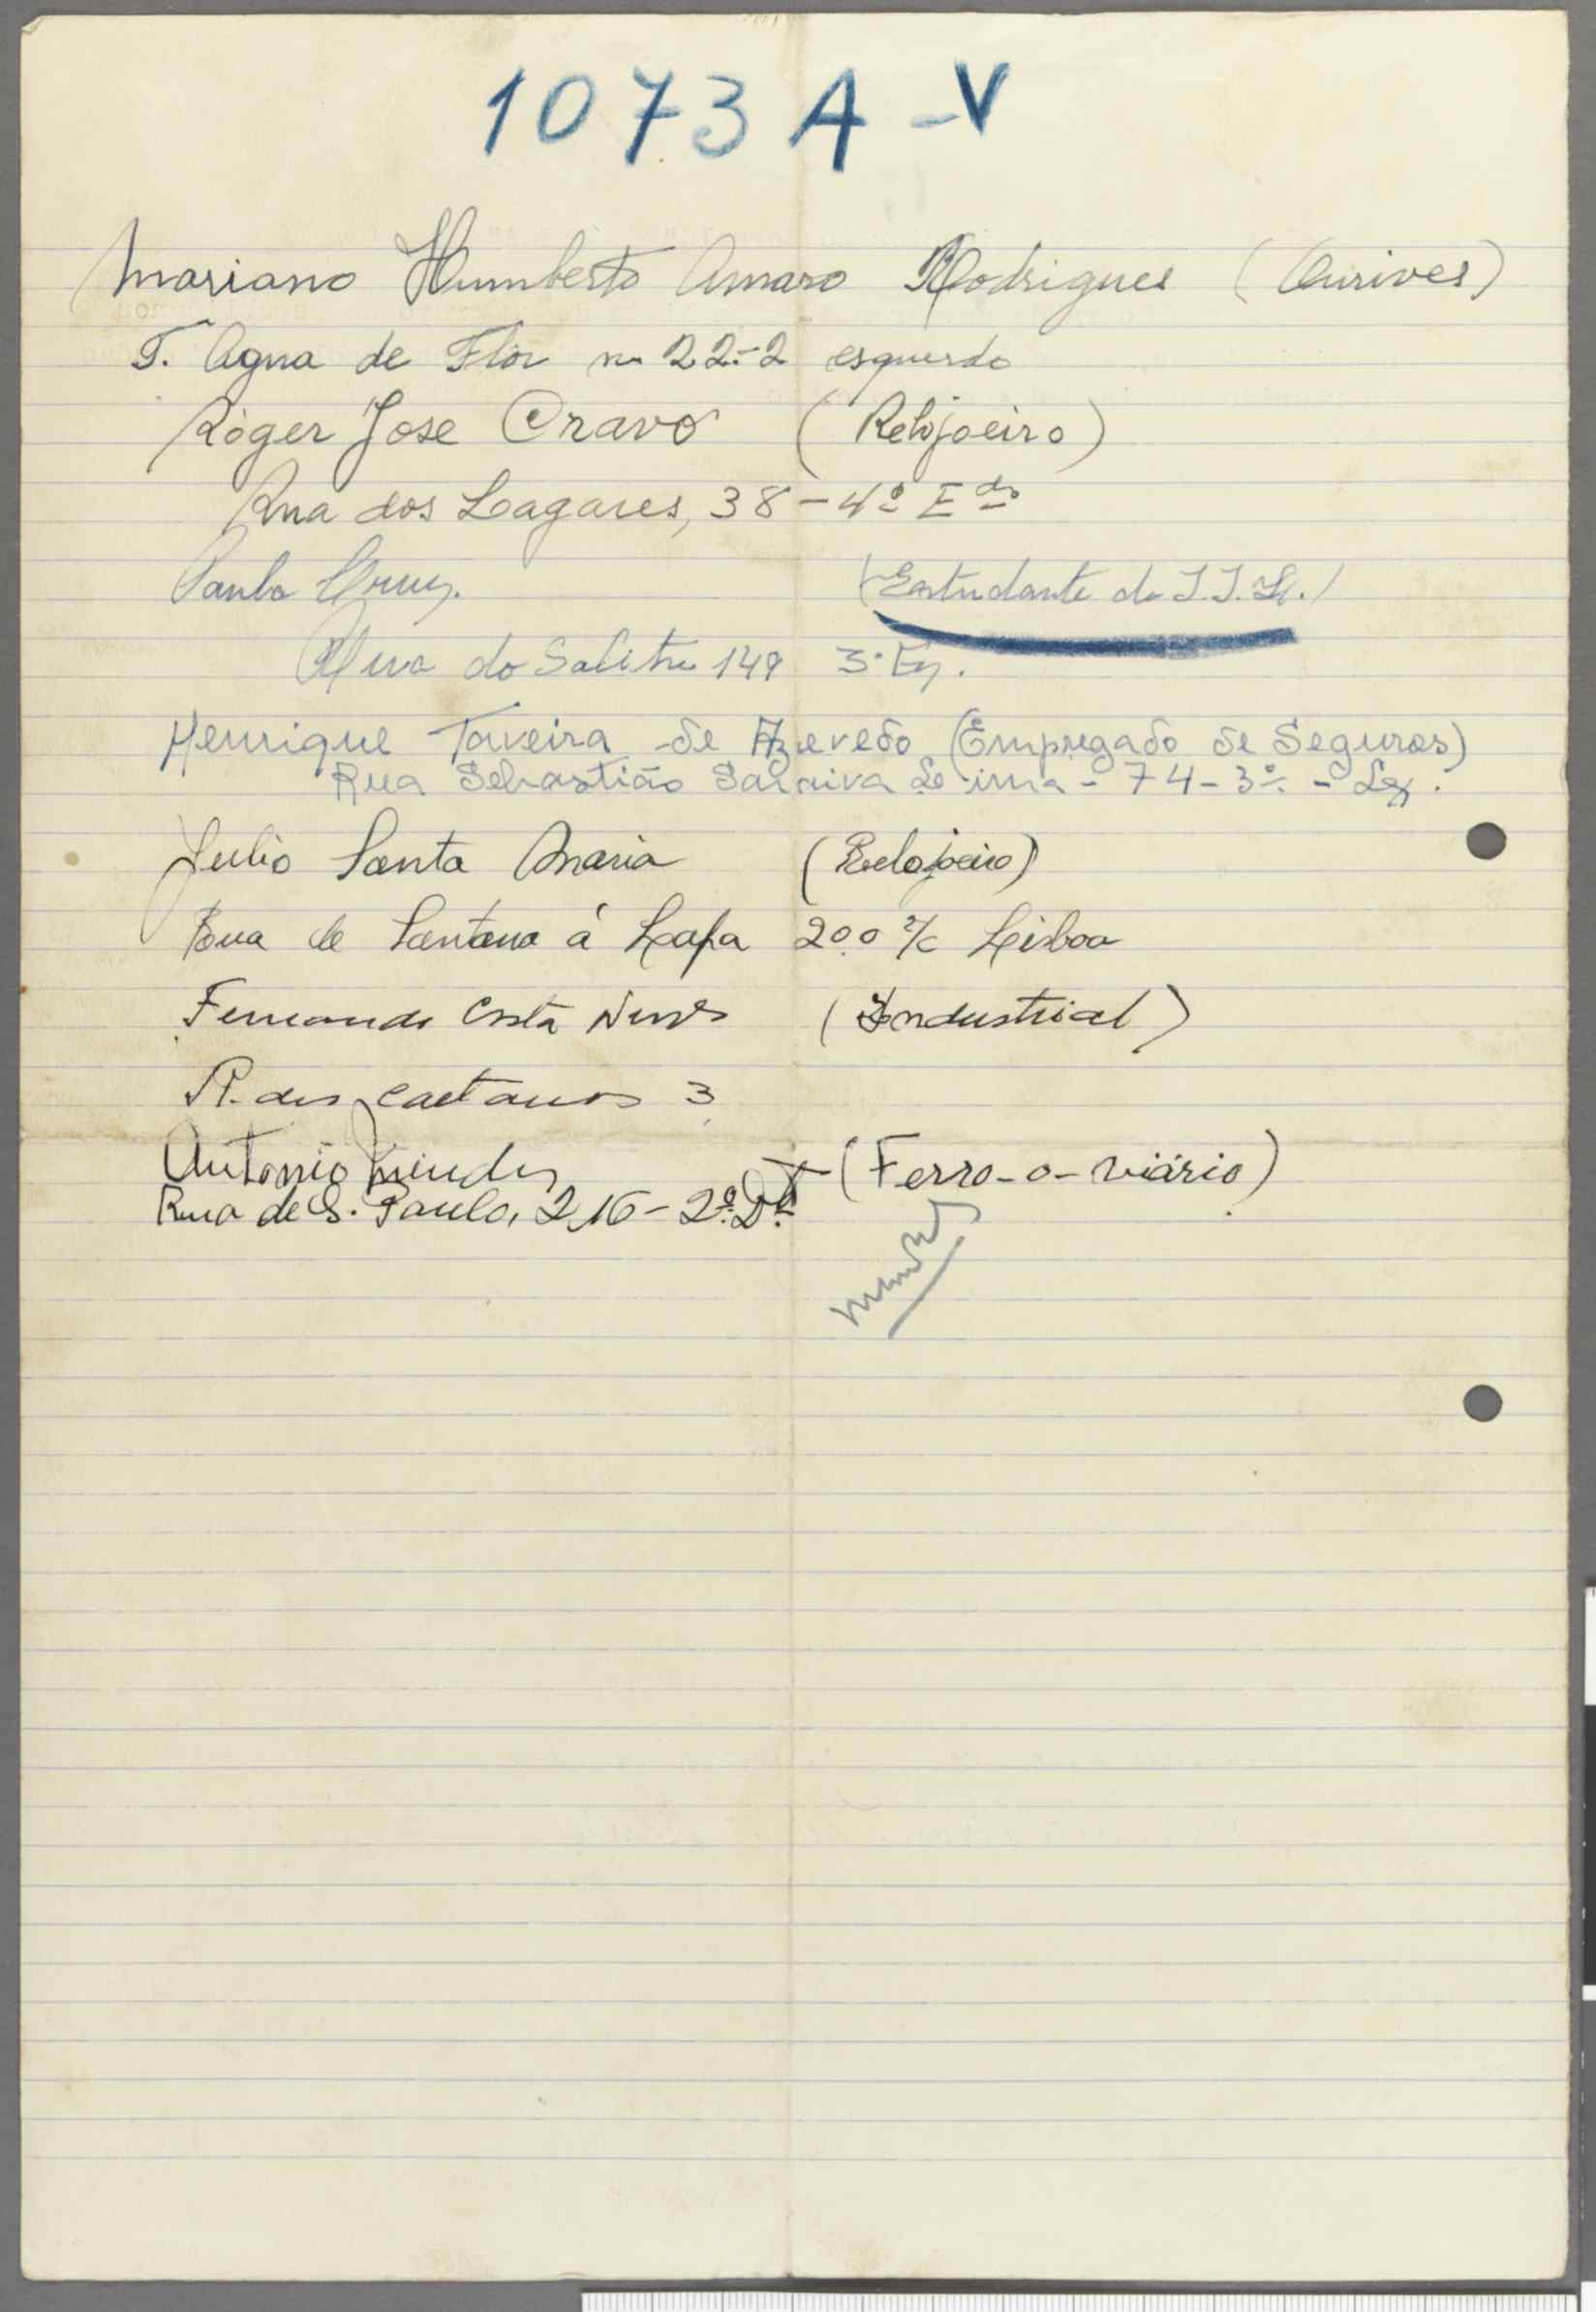 1073 A - V
Mariano Humberto Amaro Rodrigues (Ourives)
T. Agua de Flôr nº 22-2 esquerdo
Róger Jose Cravo (Relojoeiro)
Rua dos Lagares, 38-4º Edo
Paulo Cruz. (Estudante do I.I.L.)
Rua do Salitre 149 3º Eq.
Henrique Taveira de Azevedo (Empregado de Seguros)
Rua Sebastião Saraiva Lima - 74-3º - Lx.
Julio Santa Maria (Relojoeiro)
Rua de Santana á Lapa 200 r/c Lisboa
Fernando Costa Neves (Industrial)
R. dos Caetanos 3
Antonio Mendes (Ferro-o-viário)
Rua de S. Paulo, 216-2º Dt